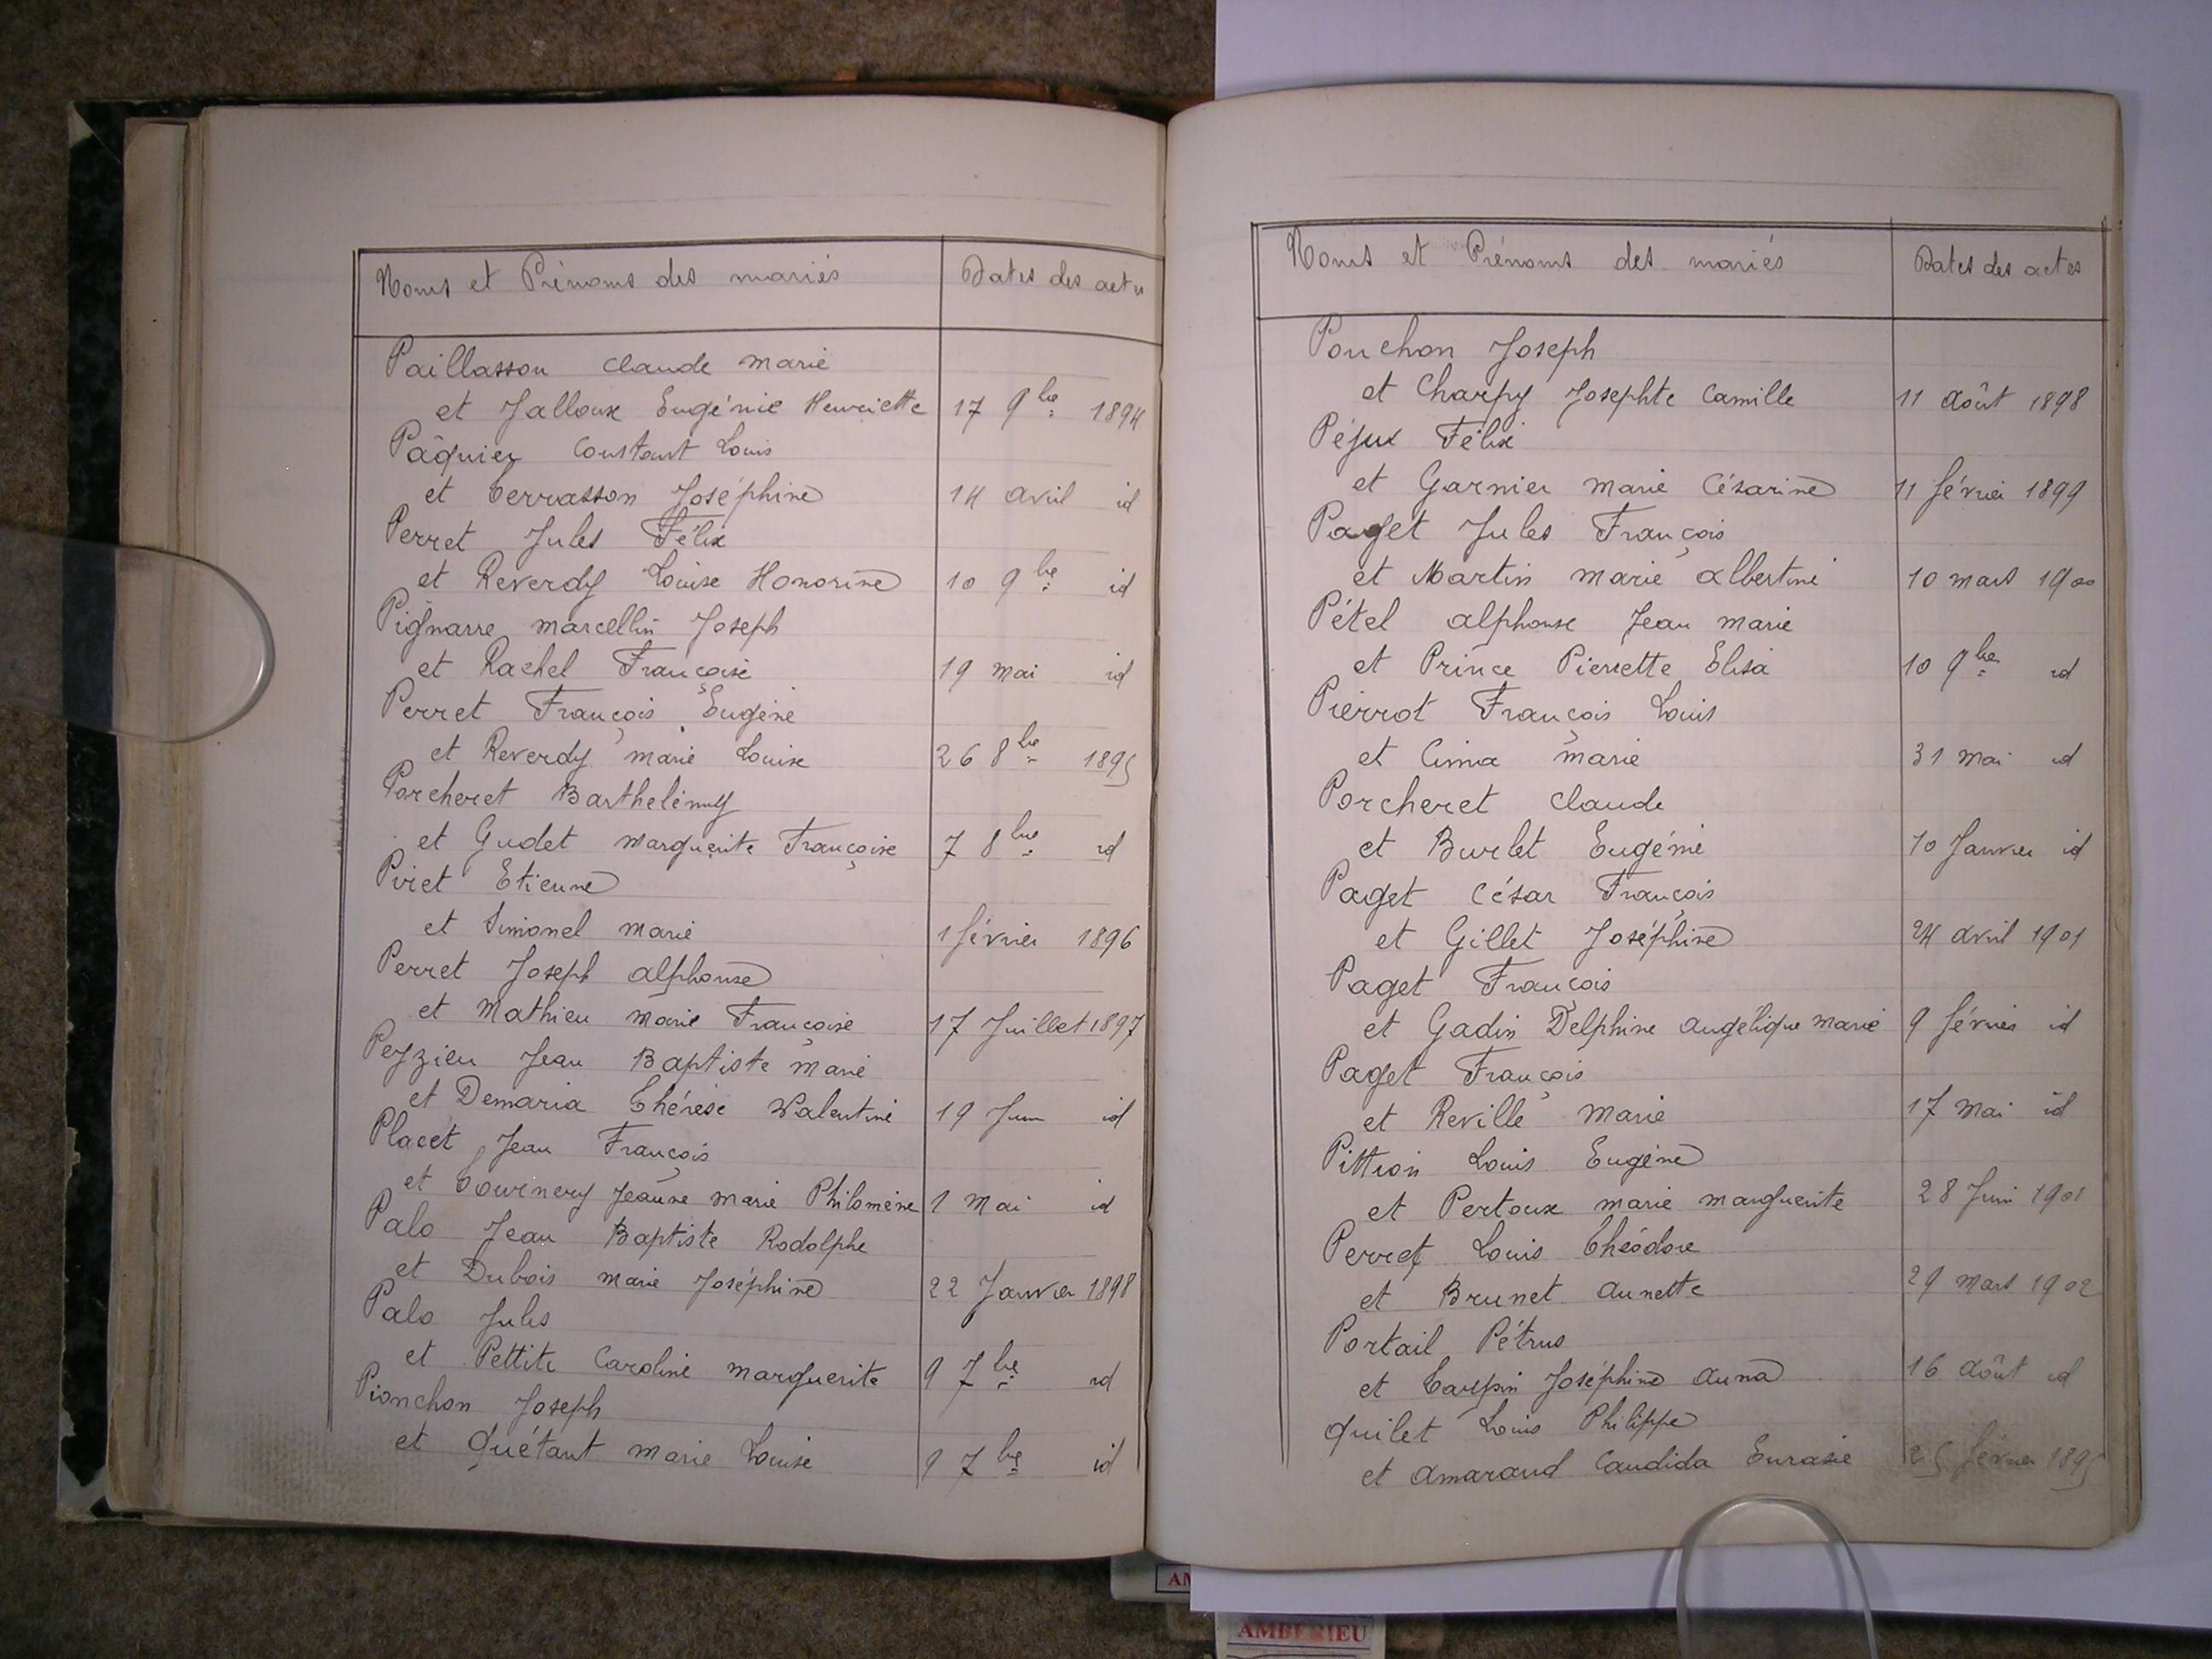 Noms et Prénoms des mariés Dates des actes
Paillasson Claude Marie
et Jalloux Eugénie Henriette 17 9bre 1894
Pâquier Constant Louis
et Terrasson Joséphine 14 avril id
Perret Jules Félix
et Reverdy Louise Honorine 10 9bre id
Pignarre Marcellin Joseph
et Rachel Françoise 19 mai id
Perret François Eugène
et Reverdy Marie Louise 26 8bre 1895
Porcheret Barthelémy
et Gudet Marguerite Françoise 7 8bre id
Piret Etienne
et Simonel Marie 1 février 1896
Perret Joseph Alphonse
et Mathieu Marie Françoise 17 Juillet 1897
Peyzieu Jean Baptiste Marie
et Demaria Thérèse Valentine 19 Juin id
Placet Jean François
et Tournery Jeanne Marie Philomène 1 Mai id
Palo Jean Baptiste Rodolphe
et Dubois Marie Joséphine 22 Janvier 1898
Palo Jules
et Pettite Caroline Marguerite 9 7bre id
Pionchon Joseph
et Quétant Marie Louise 9 7bre id
Noms et Prénoms des mariés Dates des actes
Pouchon Joseph
et Charpy Josephte Camille 11 Août 1898
Péjux Félix
et Garnier Marie Césarine 11 février 1899
Paget Jules François
et Martin Marie Albertine 10 mars 1900
Pétel Alphonse Jean Marie
et Prince Pierrette Elisa 10 9bre id
Pierrot François Louis
et Cima Marie 31 Mai id
Porcheret Claude
et Burlet Eugénie 10 Janvier id
Paget César François
et Gillet Joséphine 24 avril 1901
Paget François
et Gadin Delphine Angélique Marie 9 février id
Paget François
et Reville Marie 17 Mai id
Pittion Louis Eugène
et Pertoux Marie Marguerite 28 Juin 1901
Perret Louis Théodore
et Brunet Annette 29 Mars 1902
Portail Pétrus
et Carpin Joséphine Anna 16 Août id
Quilet Louis Philippe
et Amaraud Candida Eurasie 25 février 1895
AMBERIEU